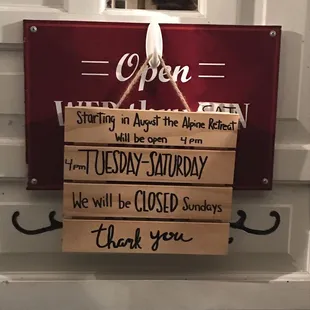 Open
Starting in August the Alpine Retreat
Will be open 4 pm
4pm TUESDAY-SATURDAY
We will be CLOSED Sundays
Thank you